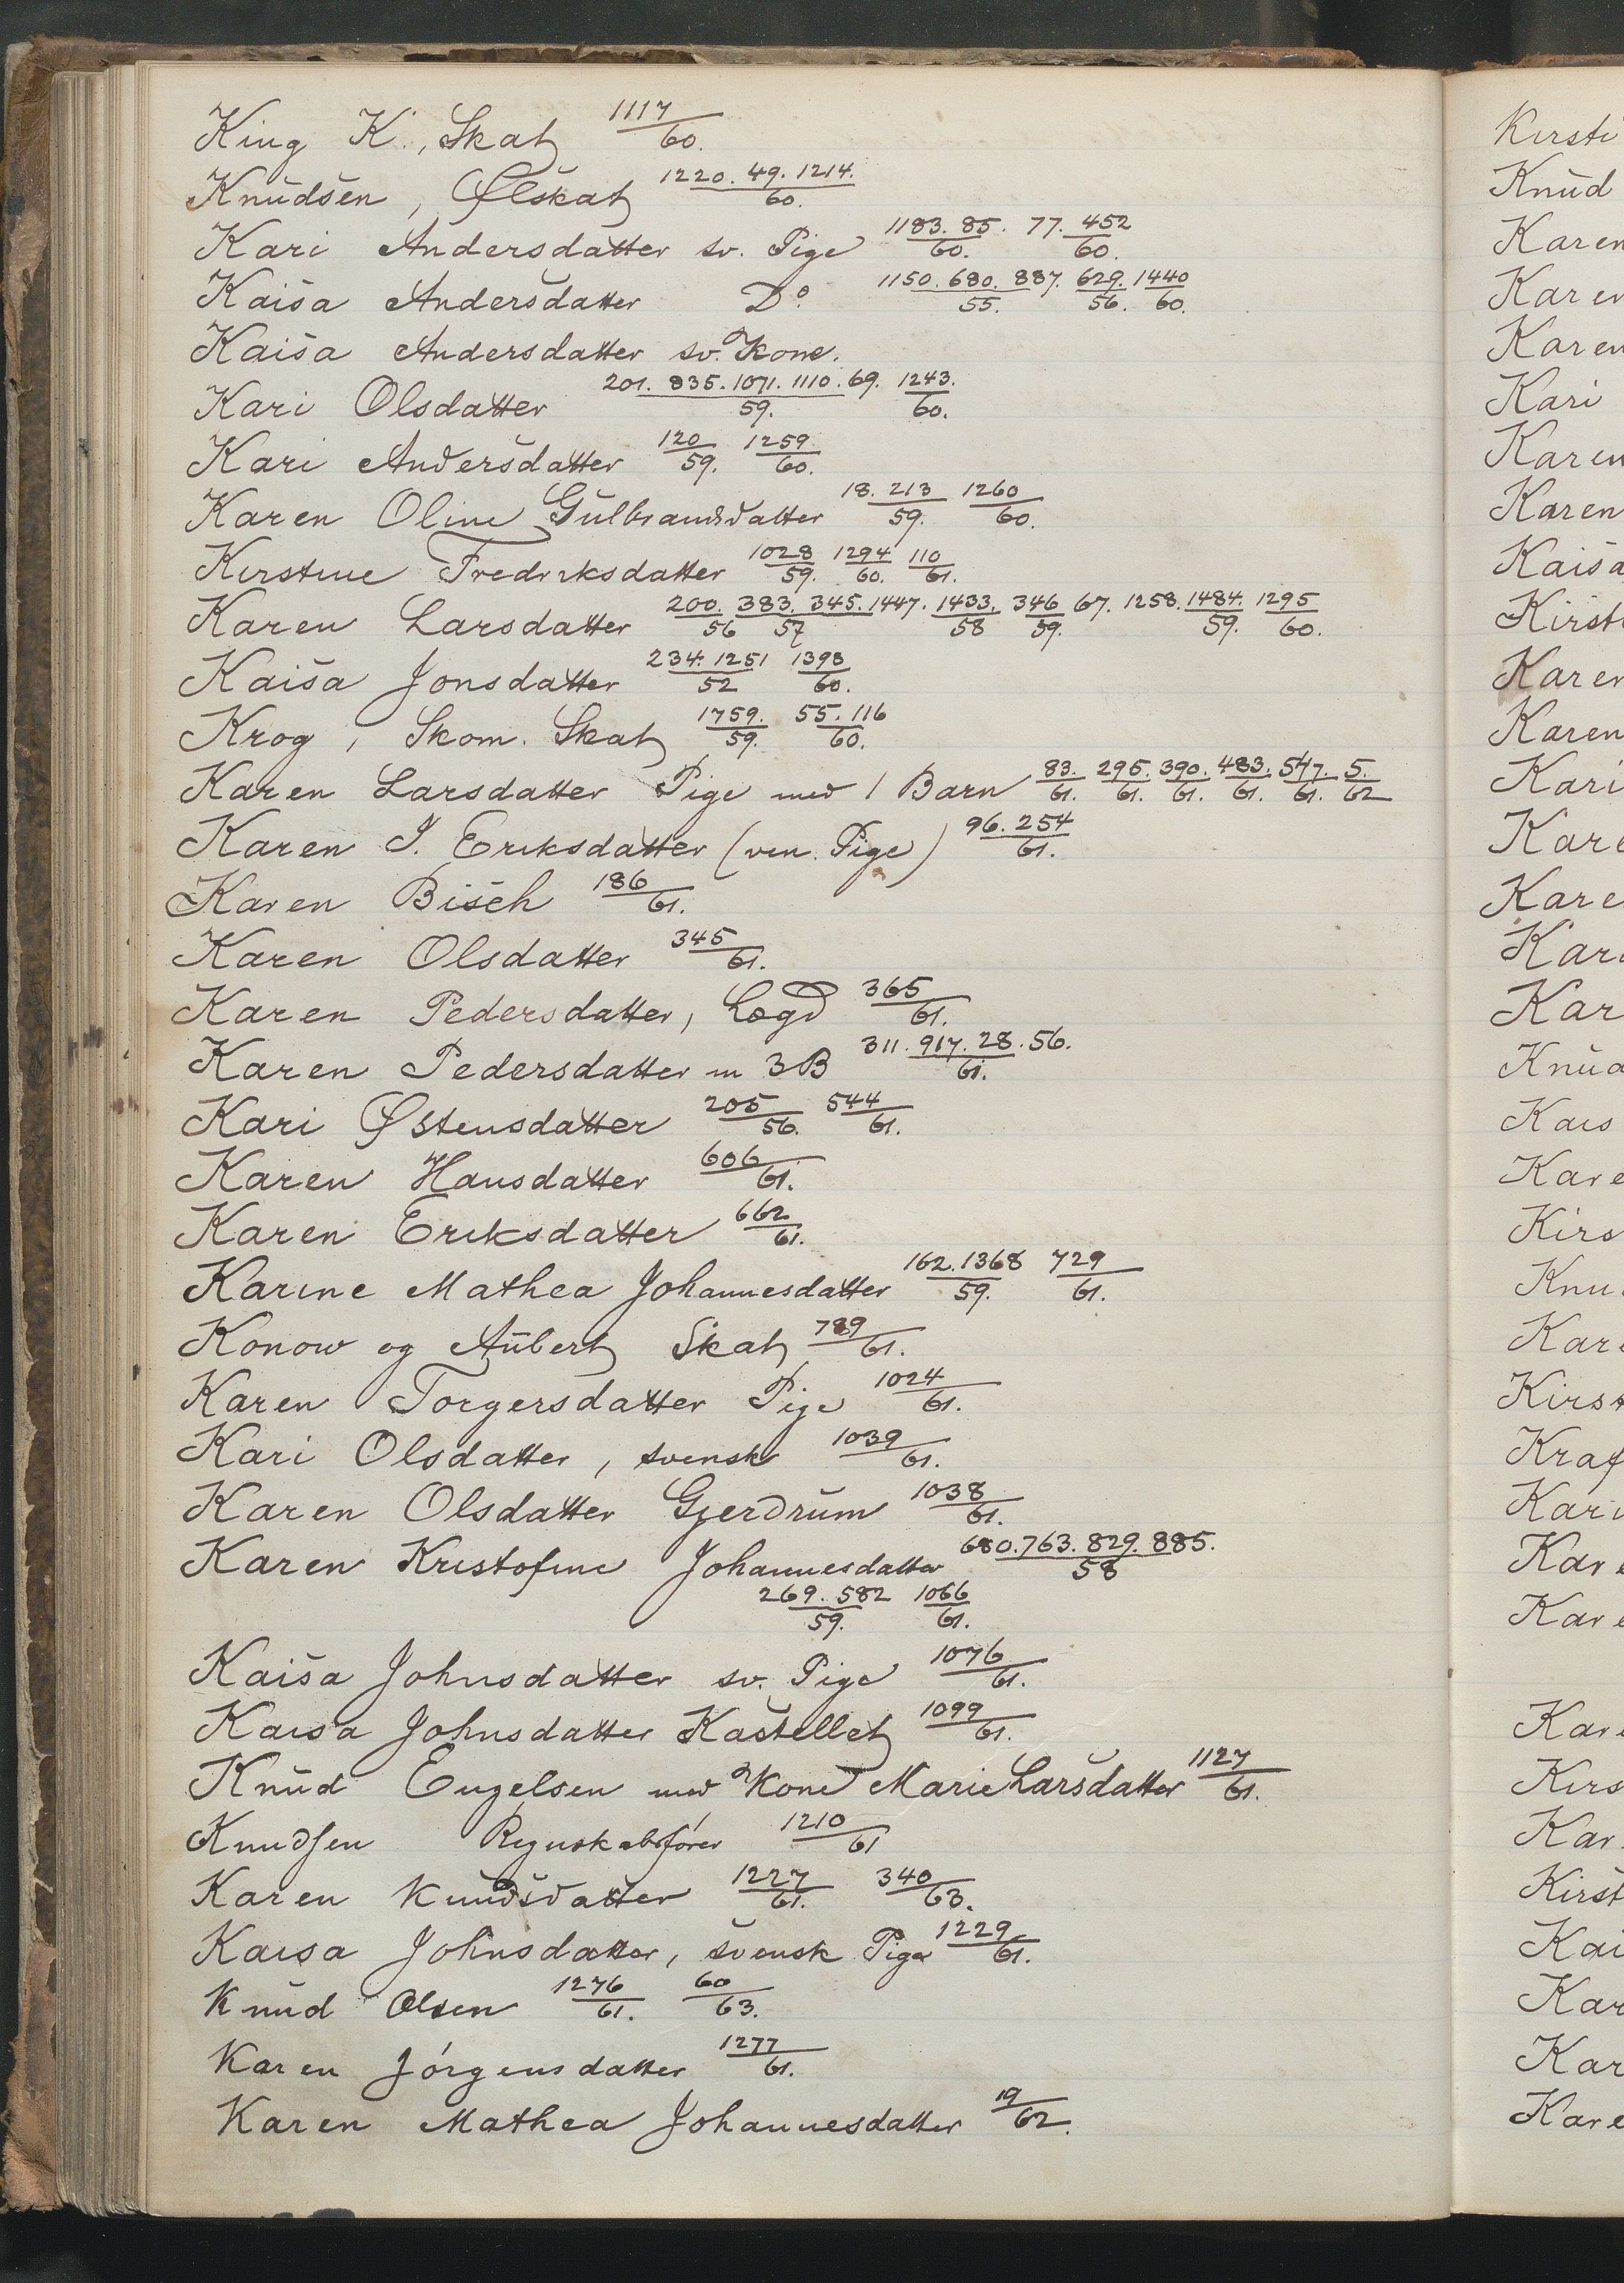 King K., Skat 1117/60.
Knudsen, Ølskat 1220. 49. 1214./60.
Kari Andersdatter sv. Pige 1183. 85./60. 77. 452/60.
Kaisa Andersdatter Do. 1150. 680. 887./55. 629./56. 1440/60.
Kaisa Andersdatter sv. Kone.
Kari Olsdatter 201. 835. 1071. 1110. 69./59. 1243./60.
Kari Andersdatter 120/59. 1259/60.
Karen Oline Gulbrandsdatter 18. 213/59. 1260/60.
Kirstine Fredriksdatter 1028/59. 1294/60. 110/61.
Karen Larsdatter 200./56 383. 345./57 1447. 1433./58 346/59. 67. 1258. 1484./59. 1295/60.
Kaisa Jonsdatter 234. 1251/52 1398/60.
Krog, Skom. Skat 1759./59. 55. 116/60.
Karen Larsdatter Pige med 1 Barn 83./61. 295./61. 390./61. 483./61. 547./61. 5./62
Karen I. Eriksdatter (ven. Pige) 96. 254/61.
Karen Bisch 186/61.
Karen Olsdatter 345/61.
Karen Pedersdatter, Lægd 365/61.
Karen Pedersdatter m 3 B 311. 917. 28. 56./61.
Kari Østensdatter 205/56. 544/61.
Karen Hansdatter 606/61.
Karen Eriksdatter 662/61.
Karine Mathea Johannesdatter 162. 1368/59. 729/61.
Konow og Aubert Skat 789/61.
Karen Torgersdatter Pige 1024/61.
Kari Olsdatter, svensk 1039/61.
Karen Olsdatter Gjerdrum 1038/61.
Karen Kristofine Johannesdatter 680. 763. 829. 885./58
269. 582/59. 1066/61.
Kaisa Johnsdatter sv. Pige 1076/61.
Kaisa Johnsdatter Kastellet 1099/61.
Knud Engelsen med Kone Marie Larsdatter 1127/61.
Knudsen Regnskabsfører 1210/61
Karen Knudsdatter 1227/61. 340/63.
Kaisa Johnsdatter, svensk Pige 1229/61.
Knud Olsen 1276/61. 60/63.
Karen Jörgensdatter 1277/61.
Karen Mathea Johannesdatter 19/62.
Kirsti
Knud
Karen
Kari
Karen
Karen
Kaisa
Karen
Kari